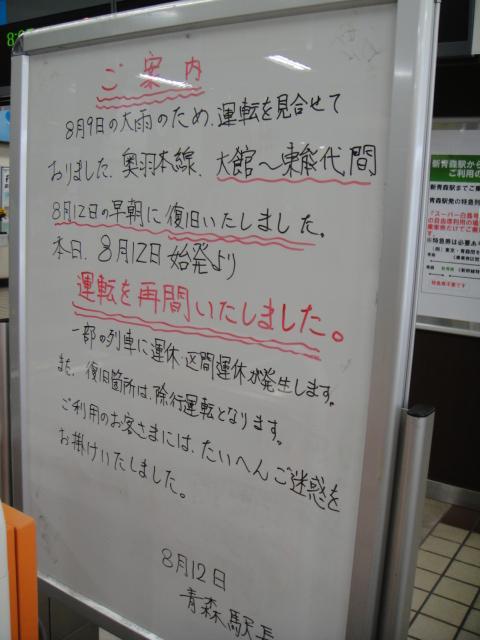 ご案内
8月9日の大雨のため、運転を見合せて
おりました、奥羽本線、大館～東能代間
8月12日の早朝に復旧いたしました。
本日、8月12日始発より
運転を再間いたしました。
一部の列車に運休・区間運休が発生します。
また、復旧箇所は、除行運転となります。
ご利用のお客さまには、たいへんご迷惑を
お掛けいたしました。
8月12日
青森駅長
新青森駅から
ご利用の
新青森駅までご乗
青森駅発の特急列
「スーパー白鳥
の自由席利用の場
乗車券だけでご乗
※特急券は必要あ
特急券不要です